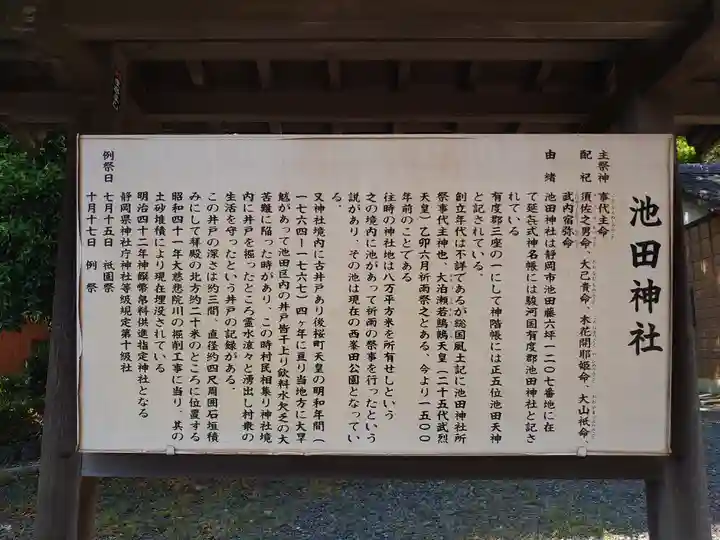 池田神社
主祭神　事代主命
配祀　須佐之男命、大己貴命、木花開耶姫命、大山祇命、
武内宿弥命
由緒　池田神社は静岡市池田藤六坪一二〇七番地に在
て延㐂式神名帳には駿河国有度郡池田神社と記さ
れている
有度郡三座の一にして神階帳には正五位池田天神
と記されている。
創立年代は不詳であるが総国風土記に池田神社所
祭事代主神也、大泊瀬若鷦鷯天皇（二十五代武烈
天皇）乙卯六月祈雨祭之とある、今より一五〇〇
年前のことである
往時の神社地は八万平方米を所有せしという
之の境内に池があって祈雨の祭事を行ったという
説があり、その池は現在の西峯田公園となってい
る。
又神社境内に古井戸あり後桜町天皇の明和年間（
一七六四ー一七六七）四ヶ年に亘り当地方に大旱
魃があって池田区内の井戸皆干上り飲料水欠乏の大
苦難に陥った時があり、この時村民相集り神社境
内に井戸を掘ったところ霊水涼々と湧出し村衆の
生活を守ったという井戸の記録がある。
この井戸の深さは約三間、直径約四尺周囲石垣積
みにして拝殿の北方約二十米のところに位置する
昭和四十一年大慈悲院川の掘削工事に当り、其の
土砂堆積により現在埋没されている
明治四十二年神饌幣帛料供進指定神社となる
静岡県神社庁神社等級規定第十級社
例祭日　七月十五日　祇園祭
十月十七日　例祭